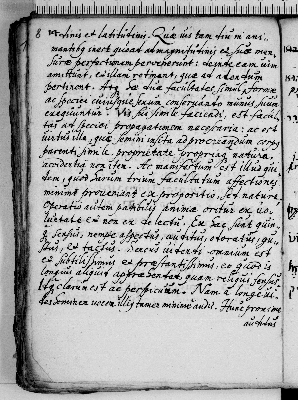 8 tudinis et latitudinis. Quae vis tam diu in ani-
mantibus inest quoad ad magnitudinis et suae men
surae perfectionem pervenerint: deinde eam vim
amittunt, et illam retinent, quae ad
pertinent. Atque hae duae facultates simul, formae
ac speciei cuiusque suum conservando munus suum
exequuntur. Vis sui simile faciendi, est facul
tas ad speciei propagationem necessaria: ac est
virtus illa, quae semini insita ad procreandum corpus
parenti simile proprietate propriaeque natura,
non item. Ac manifestum est illud qui
dem, quod harum trium facultatum affectiones
minimè proveniant ex proposito, sed natura.
Operatio autem partibus animae oritur ex vo
luntate et non ex delectu. Eae sunt quin
que sensus, nempe aspectus, auditus, odoratus, gu
stus, et tactus. Sensus videnti omnium est
et subtilissimus et praestantissimus, ex quod is
longius aliquid quam reliqui sensus.
Itque clarum est ac perspicuum. Nam a longe vi
des hominem vocem illius tamen minimè audis. Hunc proxime
auditus